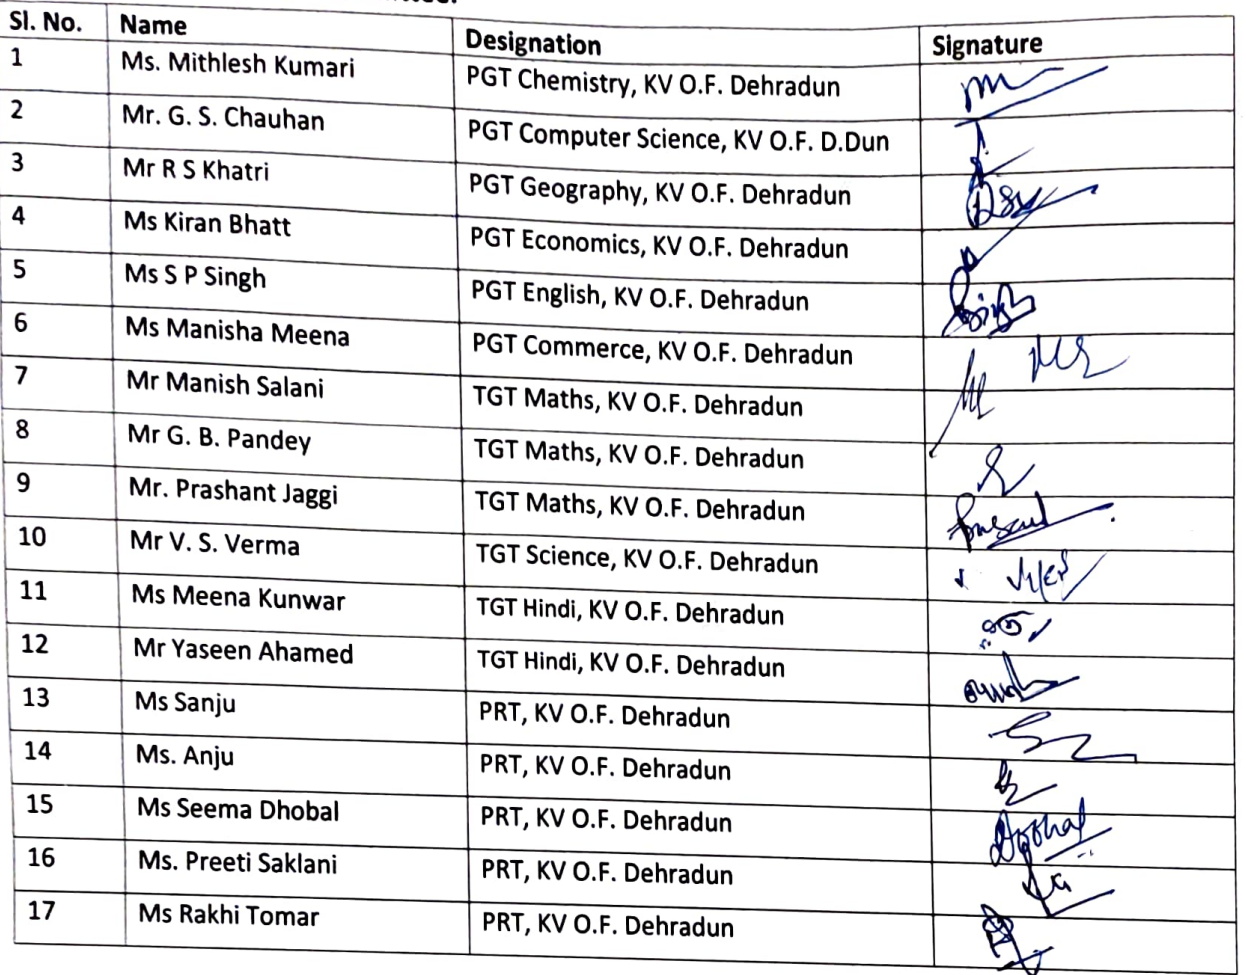 Sl. No. Name Designation Signature
1 Ms. Mithlesh Kumari PGT Chemistry, KV O.F. Dehradun
2 Mr. G. S. Chauhan PGT Computer Science, KV O.F. D.Dun
3 Mr R S Khatri PGT Geography, KV O.F. Dehradun
4 Ms Kiran Bhatt PGT Economics, KV O.F. Dehradun
5 Ms S P Singh PGT English, KV O.F. Dehradun
6 Ms Manisha Meena PGT Commerce, KV O.F. Dehradun
7 Mr Manish Salani TGT Maths, KV O.F. Dehradun
8 Mr G. B. Pandey TGT Maths, KV O.F. Dehradun
9 Mr. Prashant Jaggi TGT Maths, KV O.F. Dehradun
10 Mr V. S. Verma TGT Science, KV O.F. Dehradun
11 Ms Meena Kunwar TGT Hindi, KV O.F. Dehradun
12 Mr Yaseen Ahamed TGT Hindi, KV O.F. Dehradun
13 Ms Sanju PRT, KV O.F. Dehradun
14 Ms. Anju PRT, KV O.F. Dehradun
15 Ms Seema Dhobal PRT, KV O.F. Dehradun
16 Ms. Preeti Saklani PRT, KV O.F. Dehradun
17 Ms Rakhi Tomar PRT, KV O.F. Dehradun